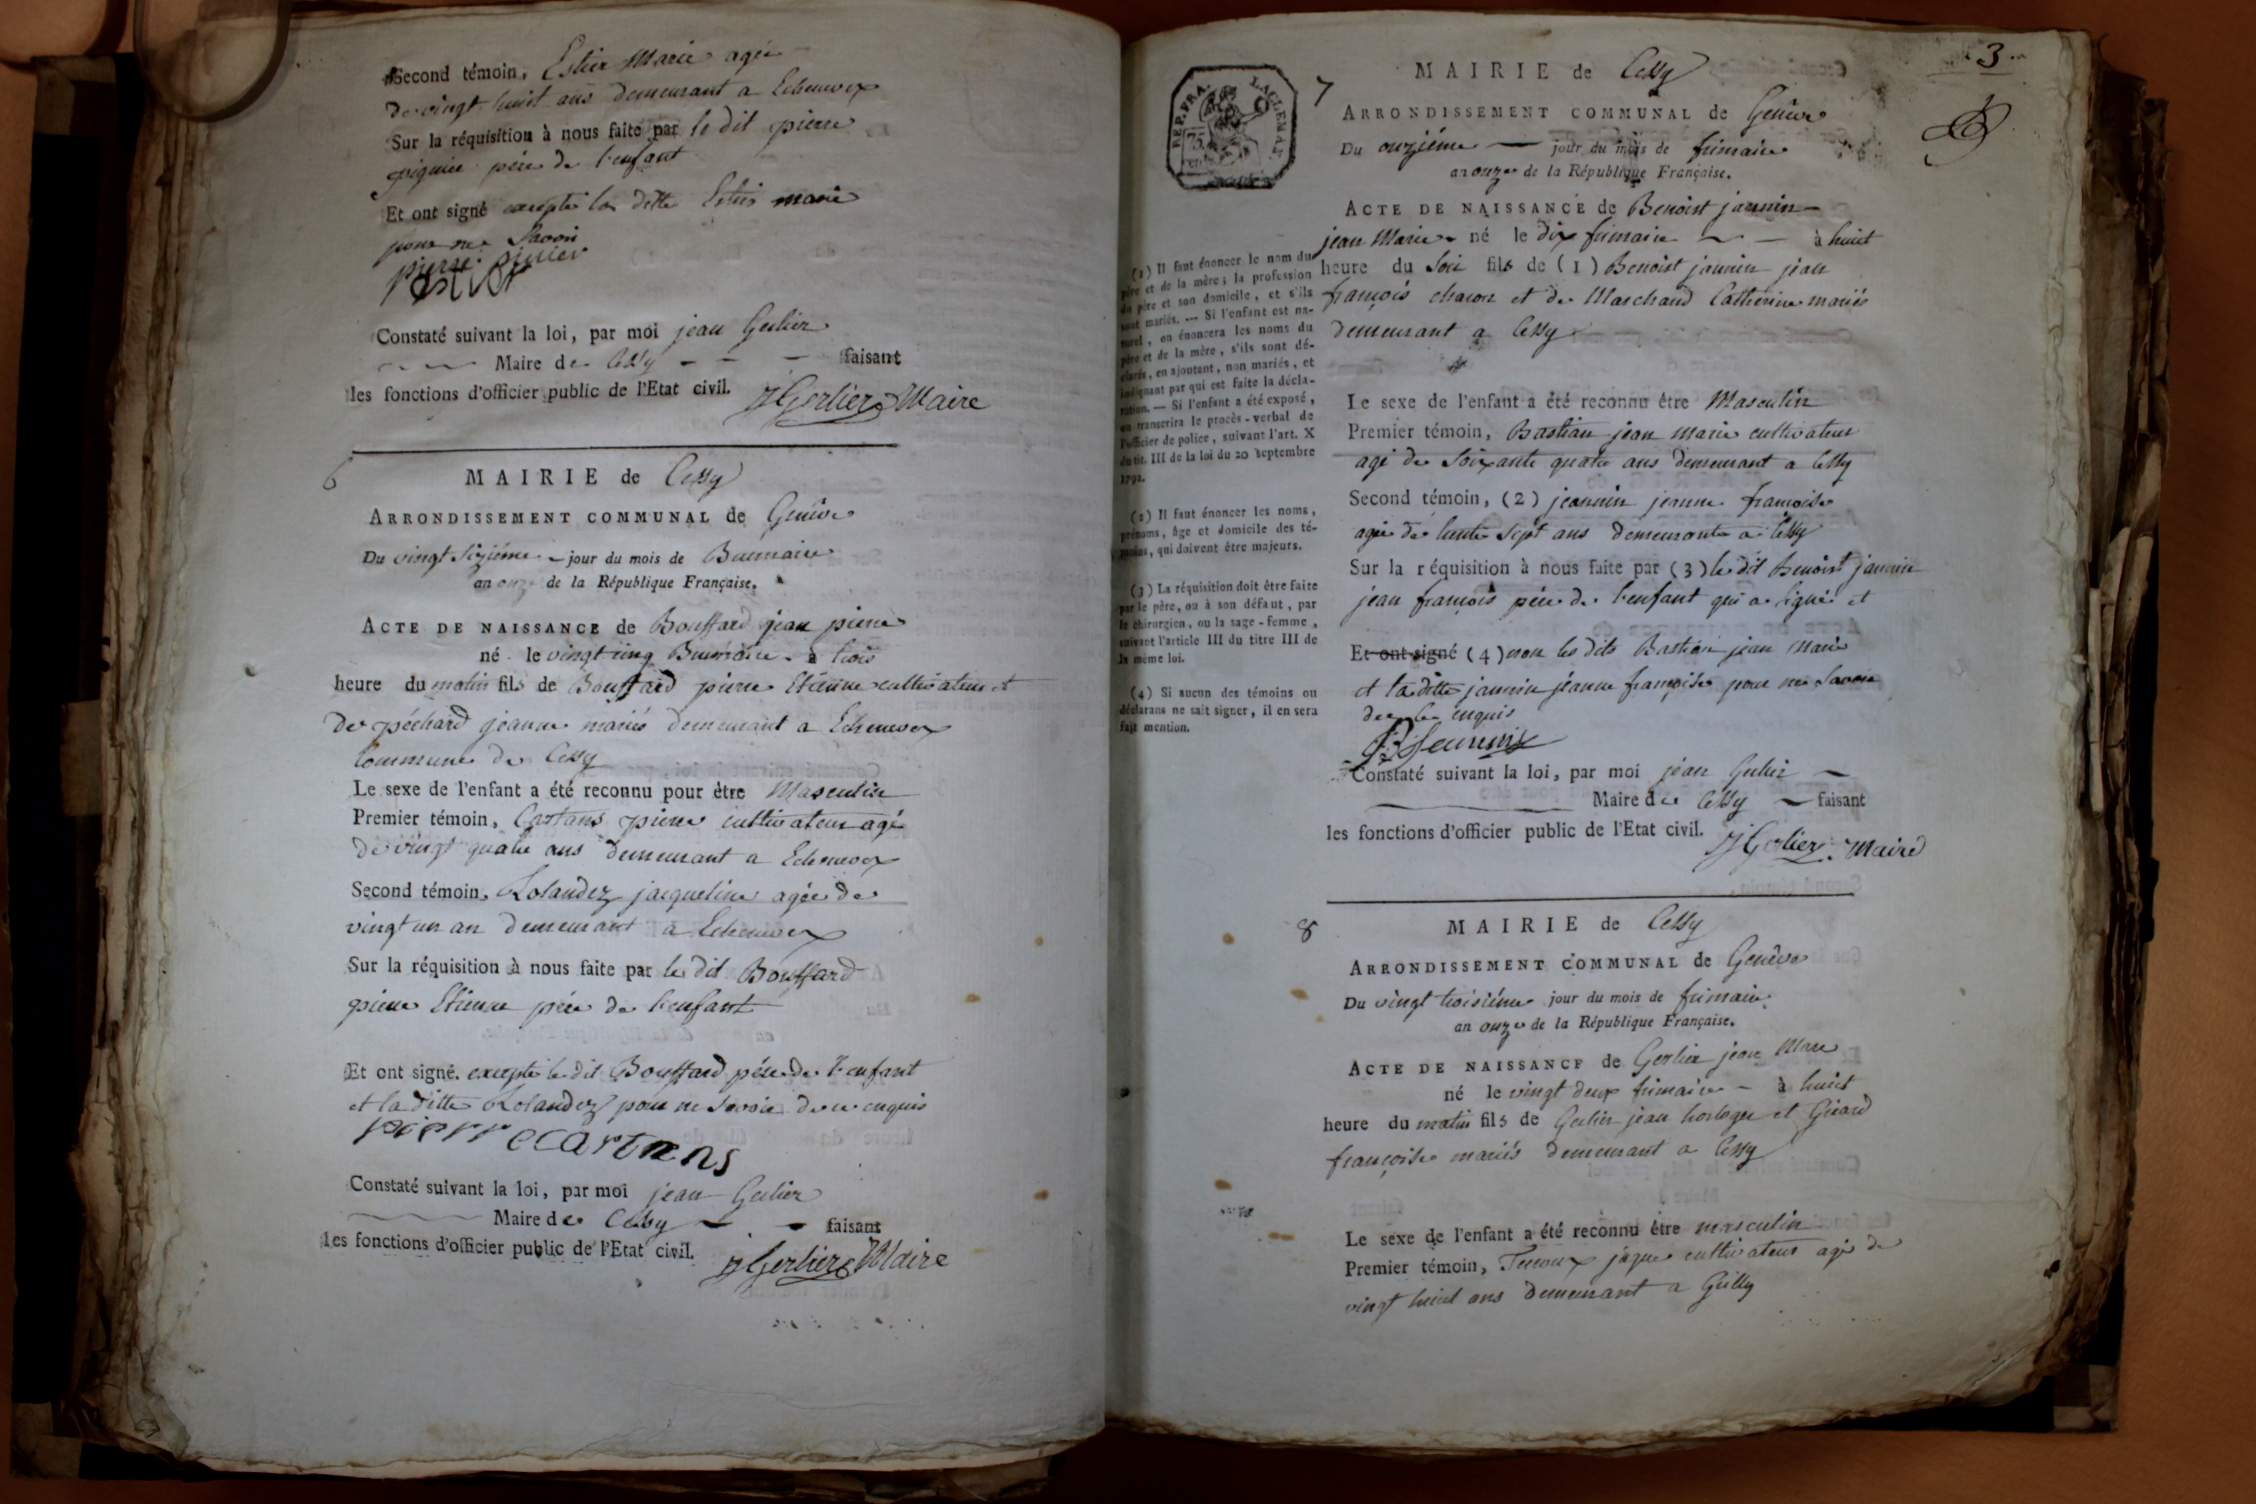 Second témoin, Estier Marie agée
de vingt huit ans demeurant a Echenevex
Sur la réquisition à nous faite par le dit pierre
piguiee père de l'enfant
Et ont signé excepté la ditte Estier marie
pour ne Savoir
pierre
Constaté suivant la loi, par moi jean Gerlier
Maire de Cessy faisant
les fonctions d'officier public de l'Etat civil.
J Gerlier Maire
6
MAIRIE de Cessy
ARRONDISSEMENT COMMUNAL de Genève
Du vingt Sixiéme jour du mois de Brumaire
an onze de la République Française.
ACTE DE NAISSANCE de Bouffard jean pierre
né le vingt cinq Brumaire à trois
heure du matin fils de Bouffard pierre Etienne cultivateur et
de péchard jeanne mariés demeurant a Echenevex
Commune de Cessy
Le sexe de l'enfant a été reconnu pour être Masculin
Premier témoin, Cartans pierre cultivateur agé
de vingt quatre ans demeurant a Echenevex
Second témoin, Rolandez jacqueline agée de
vingt un an demeurant a Echenevex
Sur la réquisition à nous faite par le dit Bouffard
pierre Etienne père de l'enfant
Et ont signé. excepté le dit Bouffard père de l'enfant
et la ditte Rolandez pour ne Savoir de ce enquis
pierre cartans
Constaté suivant la loi, par moi jean Gerlier
Maire de Cessy faisant
les fonctions d'officier public de l'Etat civil.
J Gerlier Maire
3
REP. FRA.
75
cent
7
MAIRIE de Cessy
ARRONDISSEMENT COMMUNAL de Genève
Du onziéme jour du mois de frimaire
an onze de la République Française.
ACTE DE NAISSANCE de Benoist jannin
jean Marie né le dix frimaire à huit
heure du Soir fils de (1) Benoist jannin jean
françois charon et de Marchand Catherine mariés
demeurant a Cessy
Le sexe de l'enfant a été reconnu être Masculin
Premier témoin, Bastian jean marie cultivateur
agé de Soixante quatre ans demeurant a Cessy
Second témoin, (2) jeannin jeanne françoise
agée de trente Sept ans demeurante a Cessy
Sur la réquisition à nous faite par (3) le dit Benoist jannin
jean françois père de l'enfant qui a signé et
Et ont signé (4) non les dits Bastian jean Marie
et la ditte jannin jeanne françoise pour ne Savoir
de ce enquis
Constaté suivant la loi, par moi jean Gerlier
Maire de Cessy faisant
les fonctions d'officier public de l'Etat civil.
J Gerlier Maire
(1) Il faut énoncer le nom du
père et de la mère; la profession
du père et son domicile, et s'ils
sont mariés. — Si l'enfant est na-
turel, on énoncera les noms du
père et de la mère, s'ils sont dé-
clarés, en ajoutant, non mariés, et
indiquant par qui est faite la décla-
ration. — Si l'enfant a été exposé,
on transcrira le procès-verbal de
l'officier de police, suivant l'art. X
du tit. III de la loi du 20 septembre
1792.
(2) Il faut énoncer les noms,
prénoms, âge et domicile des té-
moins, qui doivent être majeurs.
(3) La réquisition doit être faite
par le père, ou à son défaut, par
le chirurgien, ou la sage-femme,
suivant l'article III du titre III de
la même loi.
(4) Si aucun des témoins ou
déclarans ne sait signer, il en sera
fait mention.
8
MAIRIE de Cessy
ARRONDISSEMENT COMMUNAL de Genève
Du vingt troisiéme jour du mois de frimaire
an onze de la République Française.
ACTE DE NAISSANCE de Gerlier jean Marc
né le vingt deux frimaire à huit
heure du matin fils de Gerlier jean horloger et Girard
françoise mariés demeurant a Cessy
Le sexe de l'enfant a été reconnu être masculin
Premier témoin, jaque cultivateur agé de
vingt huit ans demeurant a Grilly